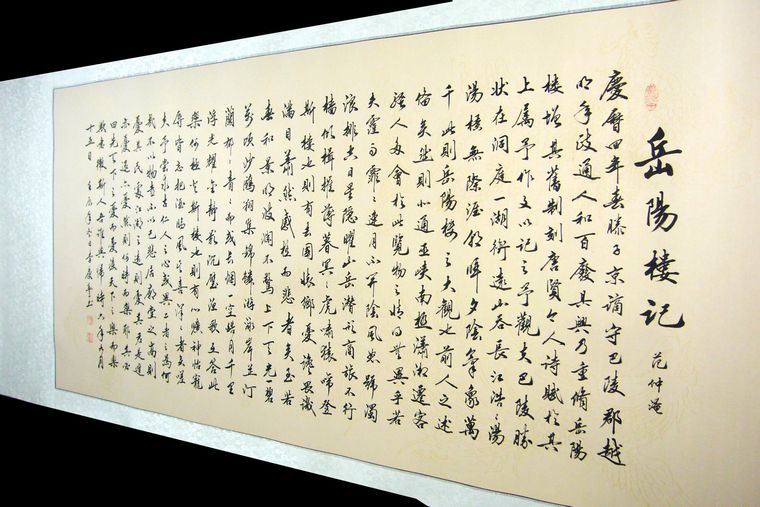 岳陽楼记
范仲淹
慶曆四年春滕子京謫守巴陵郡越
明年政通人和百廢具興乃重脩岳陽
楼增其舊制刻唐賢今人诗賦於其
上屬予作文以記之予觀夫巴陵勝
狀在洞庭一湖銜遠山吞長江浩浩湯
湯橫無際涯朝暉夕陰氣象萬
千此則岳陽楼之大觀也前人之述
备矣然則北通巫峽南極瀟湘遷客
騷人多會於此覽物之情得無異乎若
夫霪雨霏霏連月不開陰風怒號濁
浪排空日星隱曜山岳潛形商旅不行
檣傾楫摧薄暮冥冥虎嘯猿啼登
斯楼也則有去國懷鄉憂讒畏譏
滿目蕭然感極而悲者矣至若
春和景明波瀾不驚上下天光一碧
萬頃沙鷗翔集錦鱗游泳岸芷汀
蘭郁郁青青而或長烟一空皓月千里
浮光耀金靜影沉璧漁歌互答此
樂何極登斯楼也則有心曠神怡寵
辱皆忘把酒臨風其喜洋洋者矣嗟
夫予嘗求古仁人之心或異二者之為何
哉不以物喜不以己悲居廟堂之高則
憂其民處江湖之遠則憂其君是進
亦憂退亦憂然則何時而樂耶其必
曰先天下之憂而憂後天下之樂而樂
歟噫微斯人吾誰與歸時六年九月
十五日